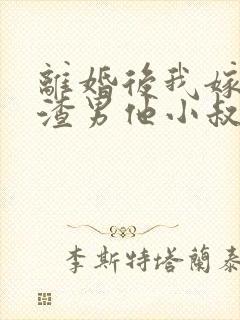 離婚後我嫁
渣男他小叔
李斯特塔蘭泰